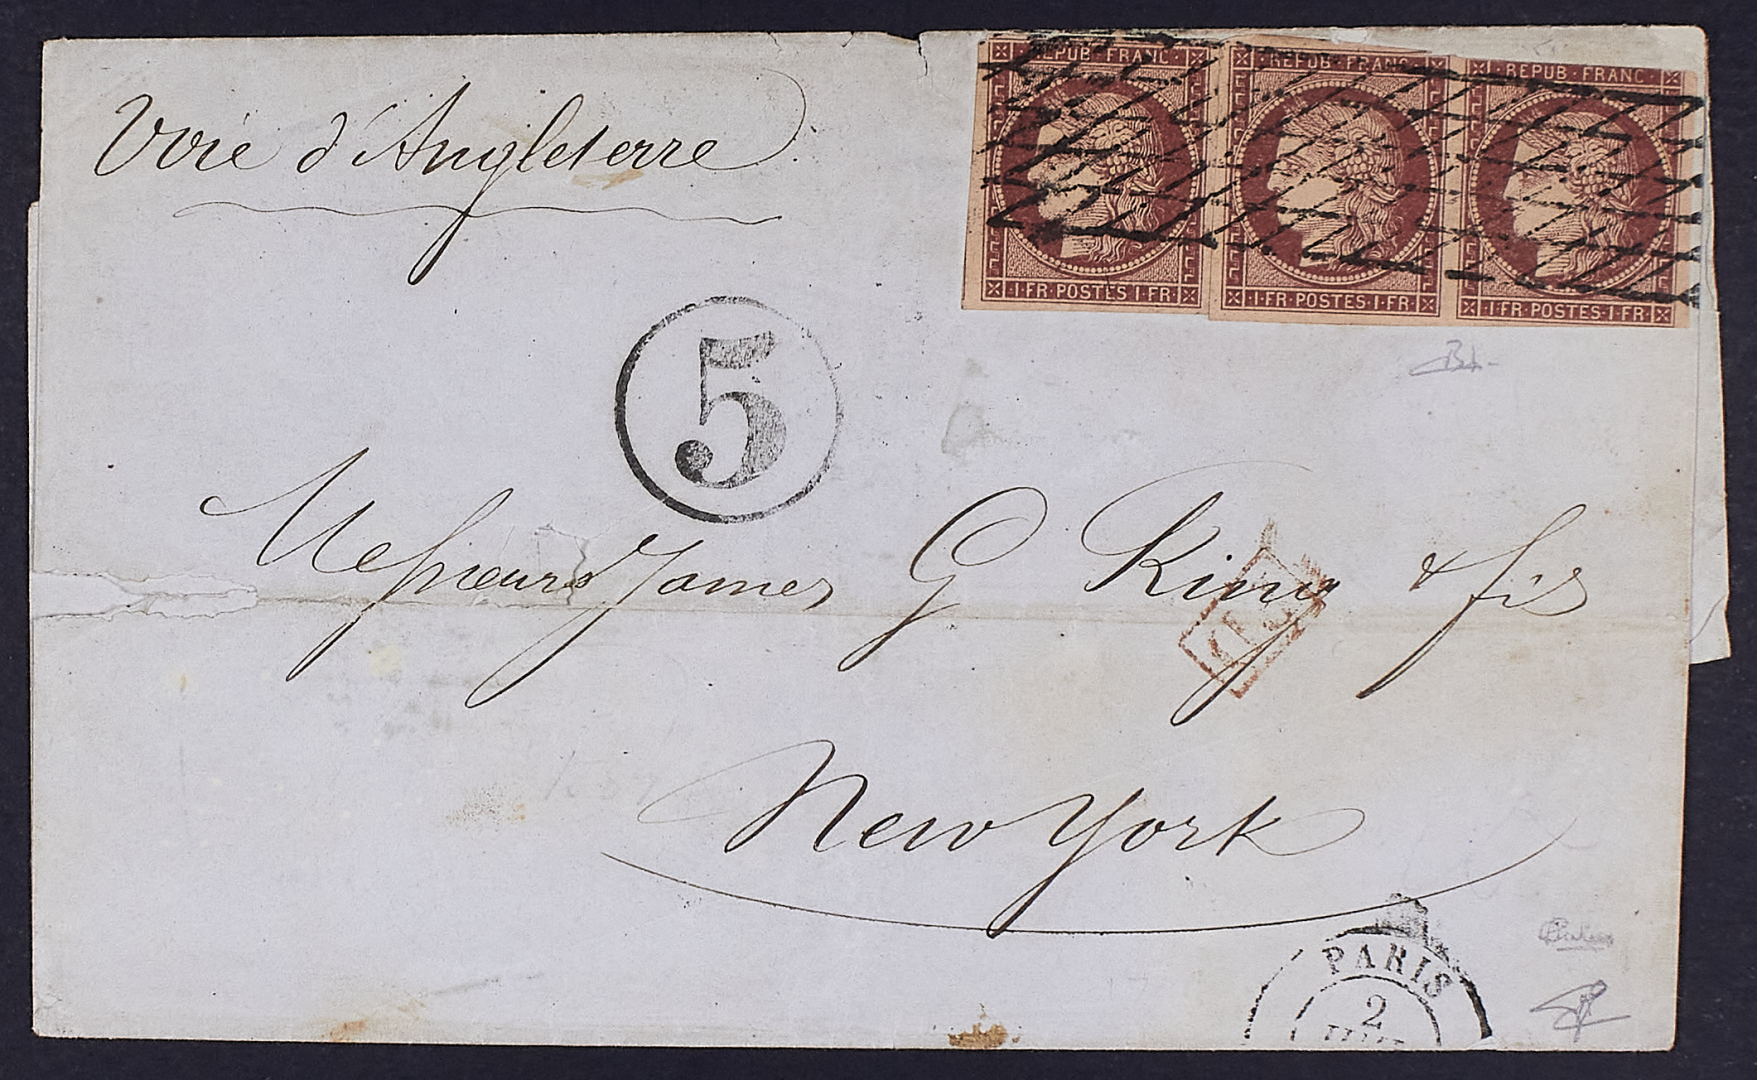 Voie d'Angleterre
REPUB·FRANC
1·FR·POSTES·1·FR
REPUB·FRANC
1·FR·POSTES·1·FR
REPUB·FRANC
1·FR·POSTES·1·FR
5
Messieurs James G King & fils
P.D.
New York
PARIS
2